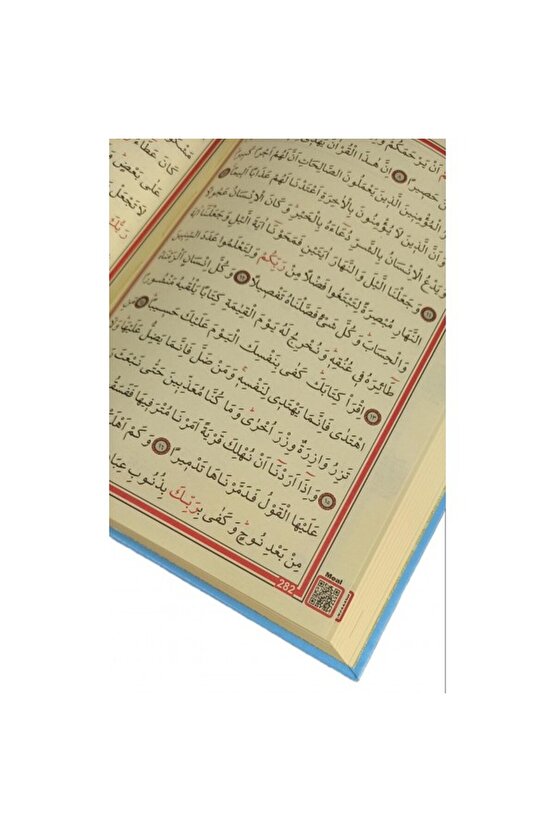 اَنْ يَرْحَمَكُمْ
حَصِيرًا ﴿٨﴾ اِنَّ هٰذَا الْقُرْاٰنَ يَهْدِى
الْمُؤْمِنِينَ الَّذِينَ يَعْمَلُونَ الصَّالِحَاتِ اَنَّ لَهُمْ اَجْرًا كَبِيرًا ﴿٩﴾
وَاَنَّ الَّذِينَ لَا يُؤْمِنُونَ بِالْاٰخِرَةِ اَعْتَدْنَا لَهُمْ عَذَابًا اَلِيمًا ﴿١٠﴾
وَيَدْعُ الْاِنْسَانُ بِالشَّرِّ دُعَٓاءَهُ بِالْخَيْرِ وَكَانَ الْاِنْسَانُ عَجُولًا
﴿١١﴾ وَجَعَلْنَا الَّيْلَ وَالنَّهَارَ اٰيَتَيْنِ فَمَحَوْنَٓا اٰيَةَ الَّيْلِ وَجَعَلْنَٓا اٰيَةَ
النَّهَارِ مُبْصِرَةً لِتَبْتَغُوا فَضْلًا مِنْ رَبِّكُمْ وَلِتَعْلَمُوا عَدَدَ السِّنِينَ
وَالْحِسَابَ وَكُلَّ شَيْءٍ فَصَّلْنَاهُ تَفْصِيلًا ﴿١٢﴾ وَكُلَّ اِنْسَانٍ اَلْزَمْنَاهُ
طَٓائِرَهُ فِى عُنُقِهِ وَنُخْرِجُ لَهُ يَوْمَ الْقِيٰمَةِ كِتَابًا يَلْقٰيهُ مَنْشُورًا
﴿١٣﴾ اِقْرَاْ كِتَابَكَ كَفٰى بِنَفْسِكَ الْيَوْمَ عَلَيْكَ حَسِيبًا ﴿١٤﴾
اهْتَدٰى فَاِنَّمَا يَهْتَدِى لِنَفْسِهِ وَمَنْ ضَلَّ فَاِنَّمَا يَضِلُّ عَلَيْهَا
تَزِرُ وَازِرَةٌ وِزْرَ اُخْرٰى وَمَا كُنَّا مُعَذِّبِينَ حَتّٰى نَبْعَثَ
﴿١٥﴾ وَاِذَٓا اَرَدْنَٓا اَنْ نُهْلِكَ قَرْيَةً اَمَرْنَا مُتْرَفِيهَا
عَلَيْهَا الْقَوْلُ فَدَمَّرْنَاهَا تَدْمِيرًا ﴿١٦﴾ وَكَمْ
مِنْ بَعْدِ نُوحٍ وَكَفٰى بِرَبِّكَ بِذُنُوبِ
282
Meal
كَانَ
عَلٰى بَعْضٍ
لَا تَجْعَلْ